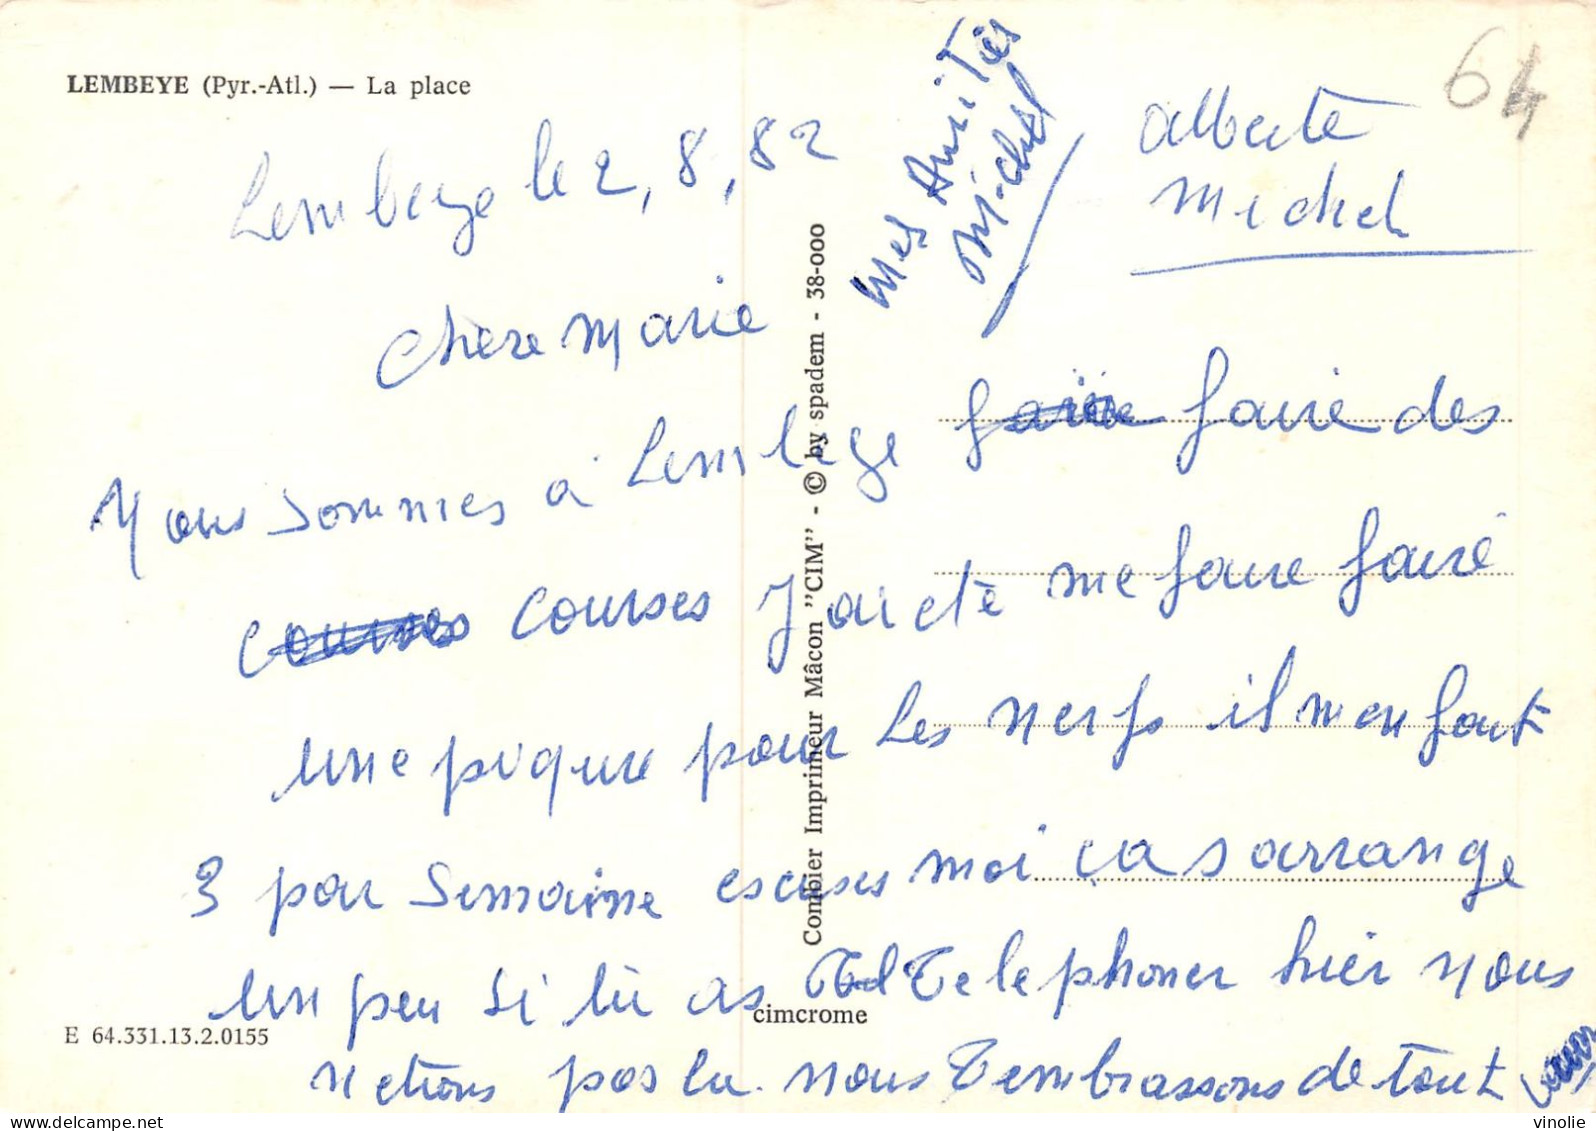 LEMBEYE (Pyr.-Atl.) — La place
64
Lembeye le 2,8,82
Chere Marie
Nous sommes à Lembege faire faire des
courses courses J ai etè me faire fairé
une piqure pour les nerfs il men faut
3 par semaine escuses moi ça s arrange
un peu si tu as Tel Telephoner hier nous
n etions pas la. nous T embrassons de tout
mes Amitiés
Michel
Alberte
Michel
Combier Imprimeur Mâcon "CIM" - © by spadem - 38-000
cimcrome
E 64.331.13.2.0155
vinolie